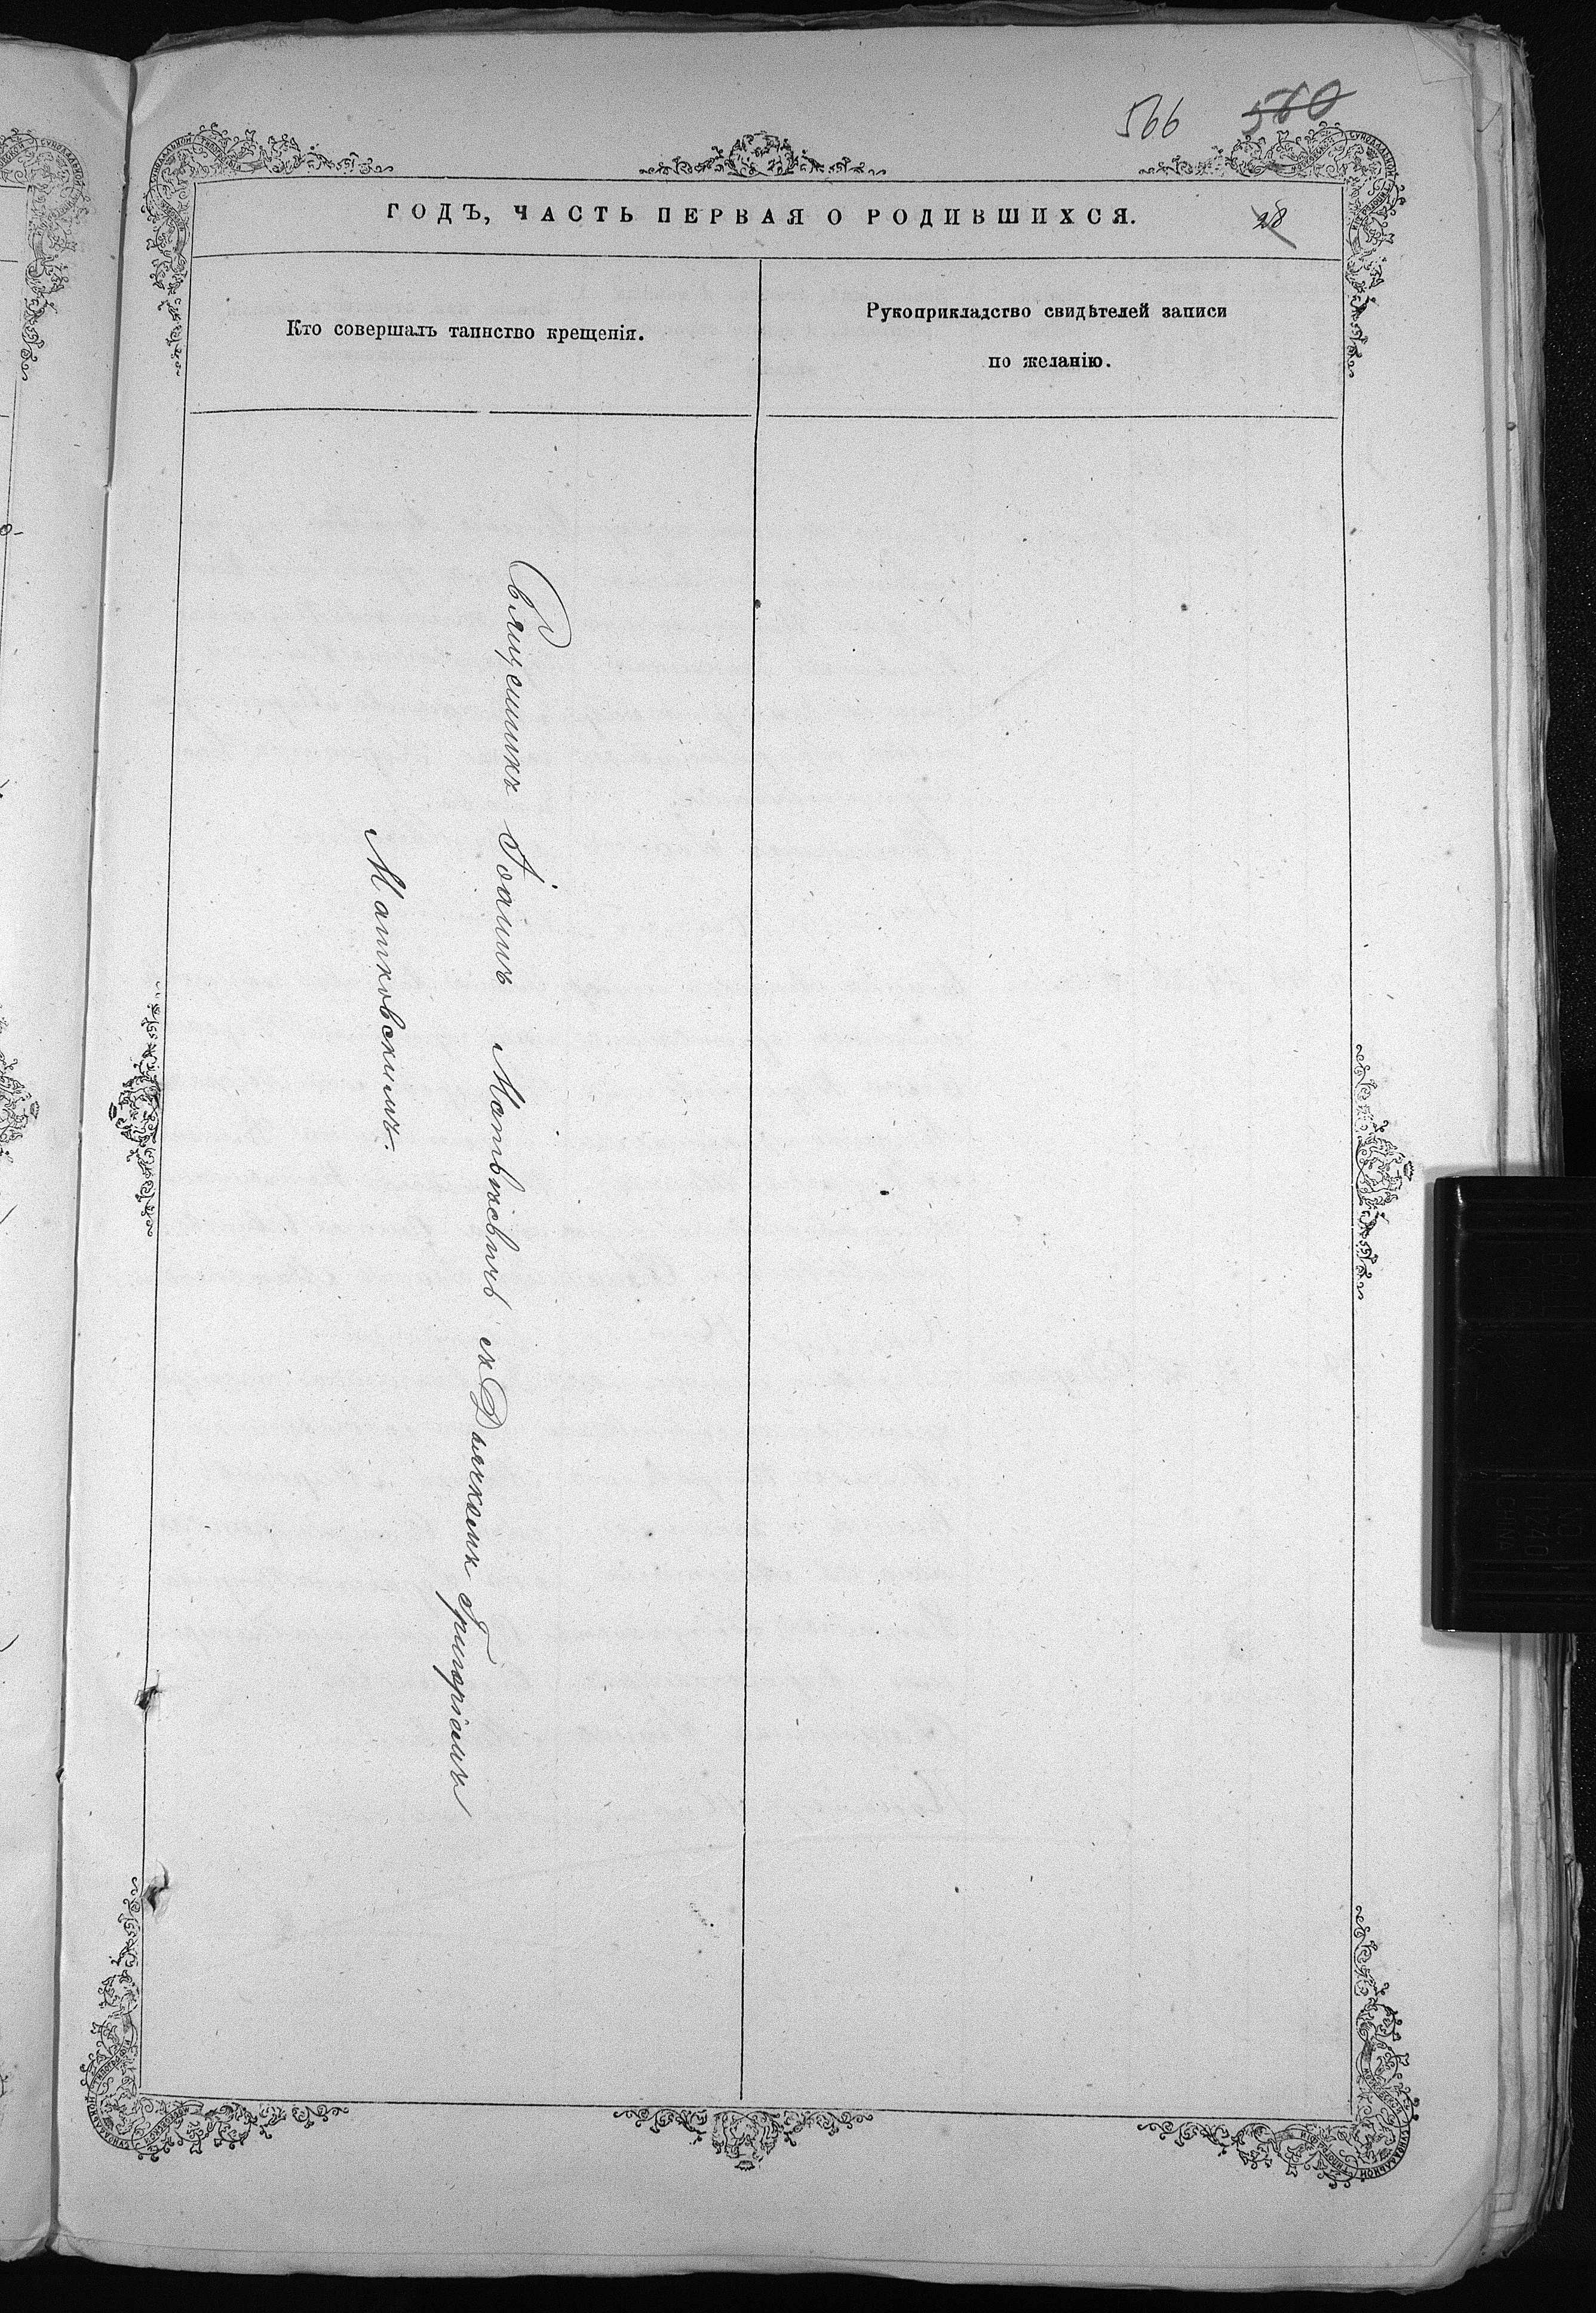 566 560
ГОДЪ, ЧАСТЬ ПЕРВАЯ О РОДИВШИХСЯ.
28
Кто совершалъ таинство крещенія.
Рукоприкладство свидѣтелей записи
по желанію.
Священникъ Іоаннъ съ Дьячкомъ Григоріемъ
Матковскимъ.